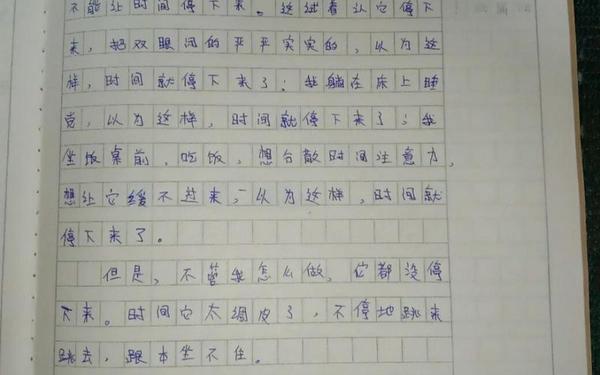 不能让时间停下来。还试着让它停下
来，把双眼闭的严严实实的，以为这
样，时间就停下来了；我躺在床上睡
觉，以为这样，时间就停下来了；我
坐饭桌前，吃饭，想分散时间注意力，
想让它缓不过来，以为这样，时间就
停下来了。
但是，不管我怎么做，它都没停
下来。时间它太调皮了，不停地跳来
跳去，跟本坐不住。